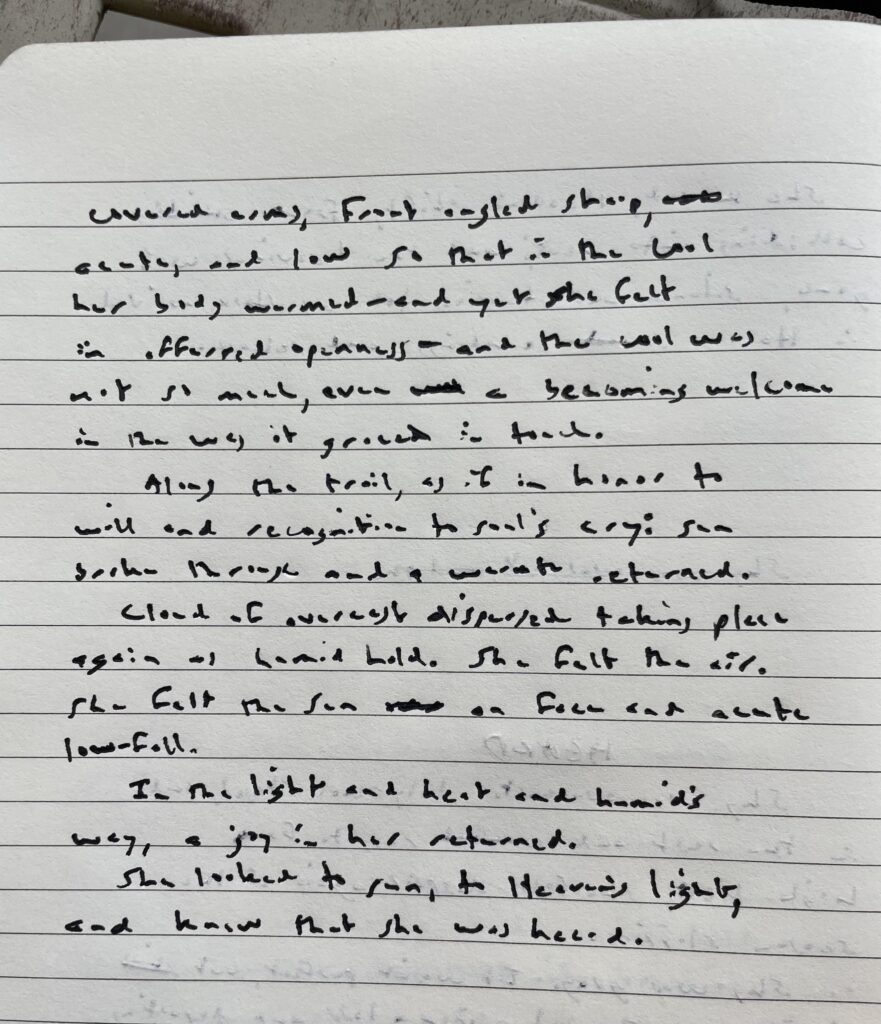 covered arms, Front angled sharp,
acute, and low so that in the cool
her body warmed - and yet she felt
in offered openness - and the cool was
not so much, even a becoming welcome
in the way it graced in touch.
Along the trail, as if in honor to
will and recognition to soul's cry: sun
broke through and a warmth returned.
Cloud of overcast dispersed taking place
again as humid hold. She felt the air.
She felt the sun on Face and acute
low-fall.
In the light and heat and humid's
way, a joy in her returned.
She looked to sun, to Heaven's light,
and knew that she was heard.